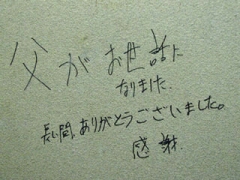 父がお世話に
なりました
長い間、ありがとうございました。
感謝